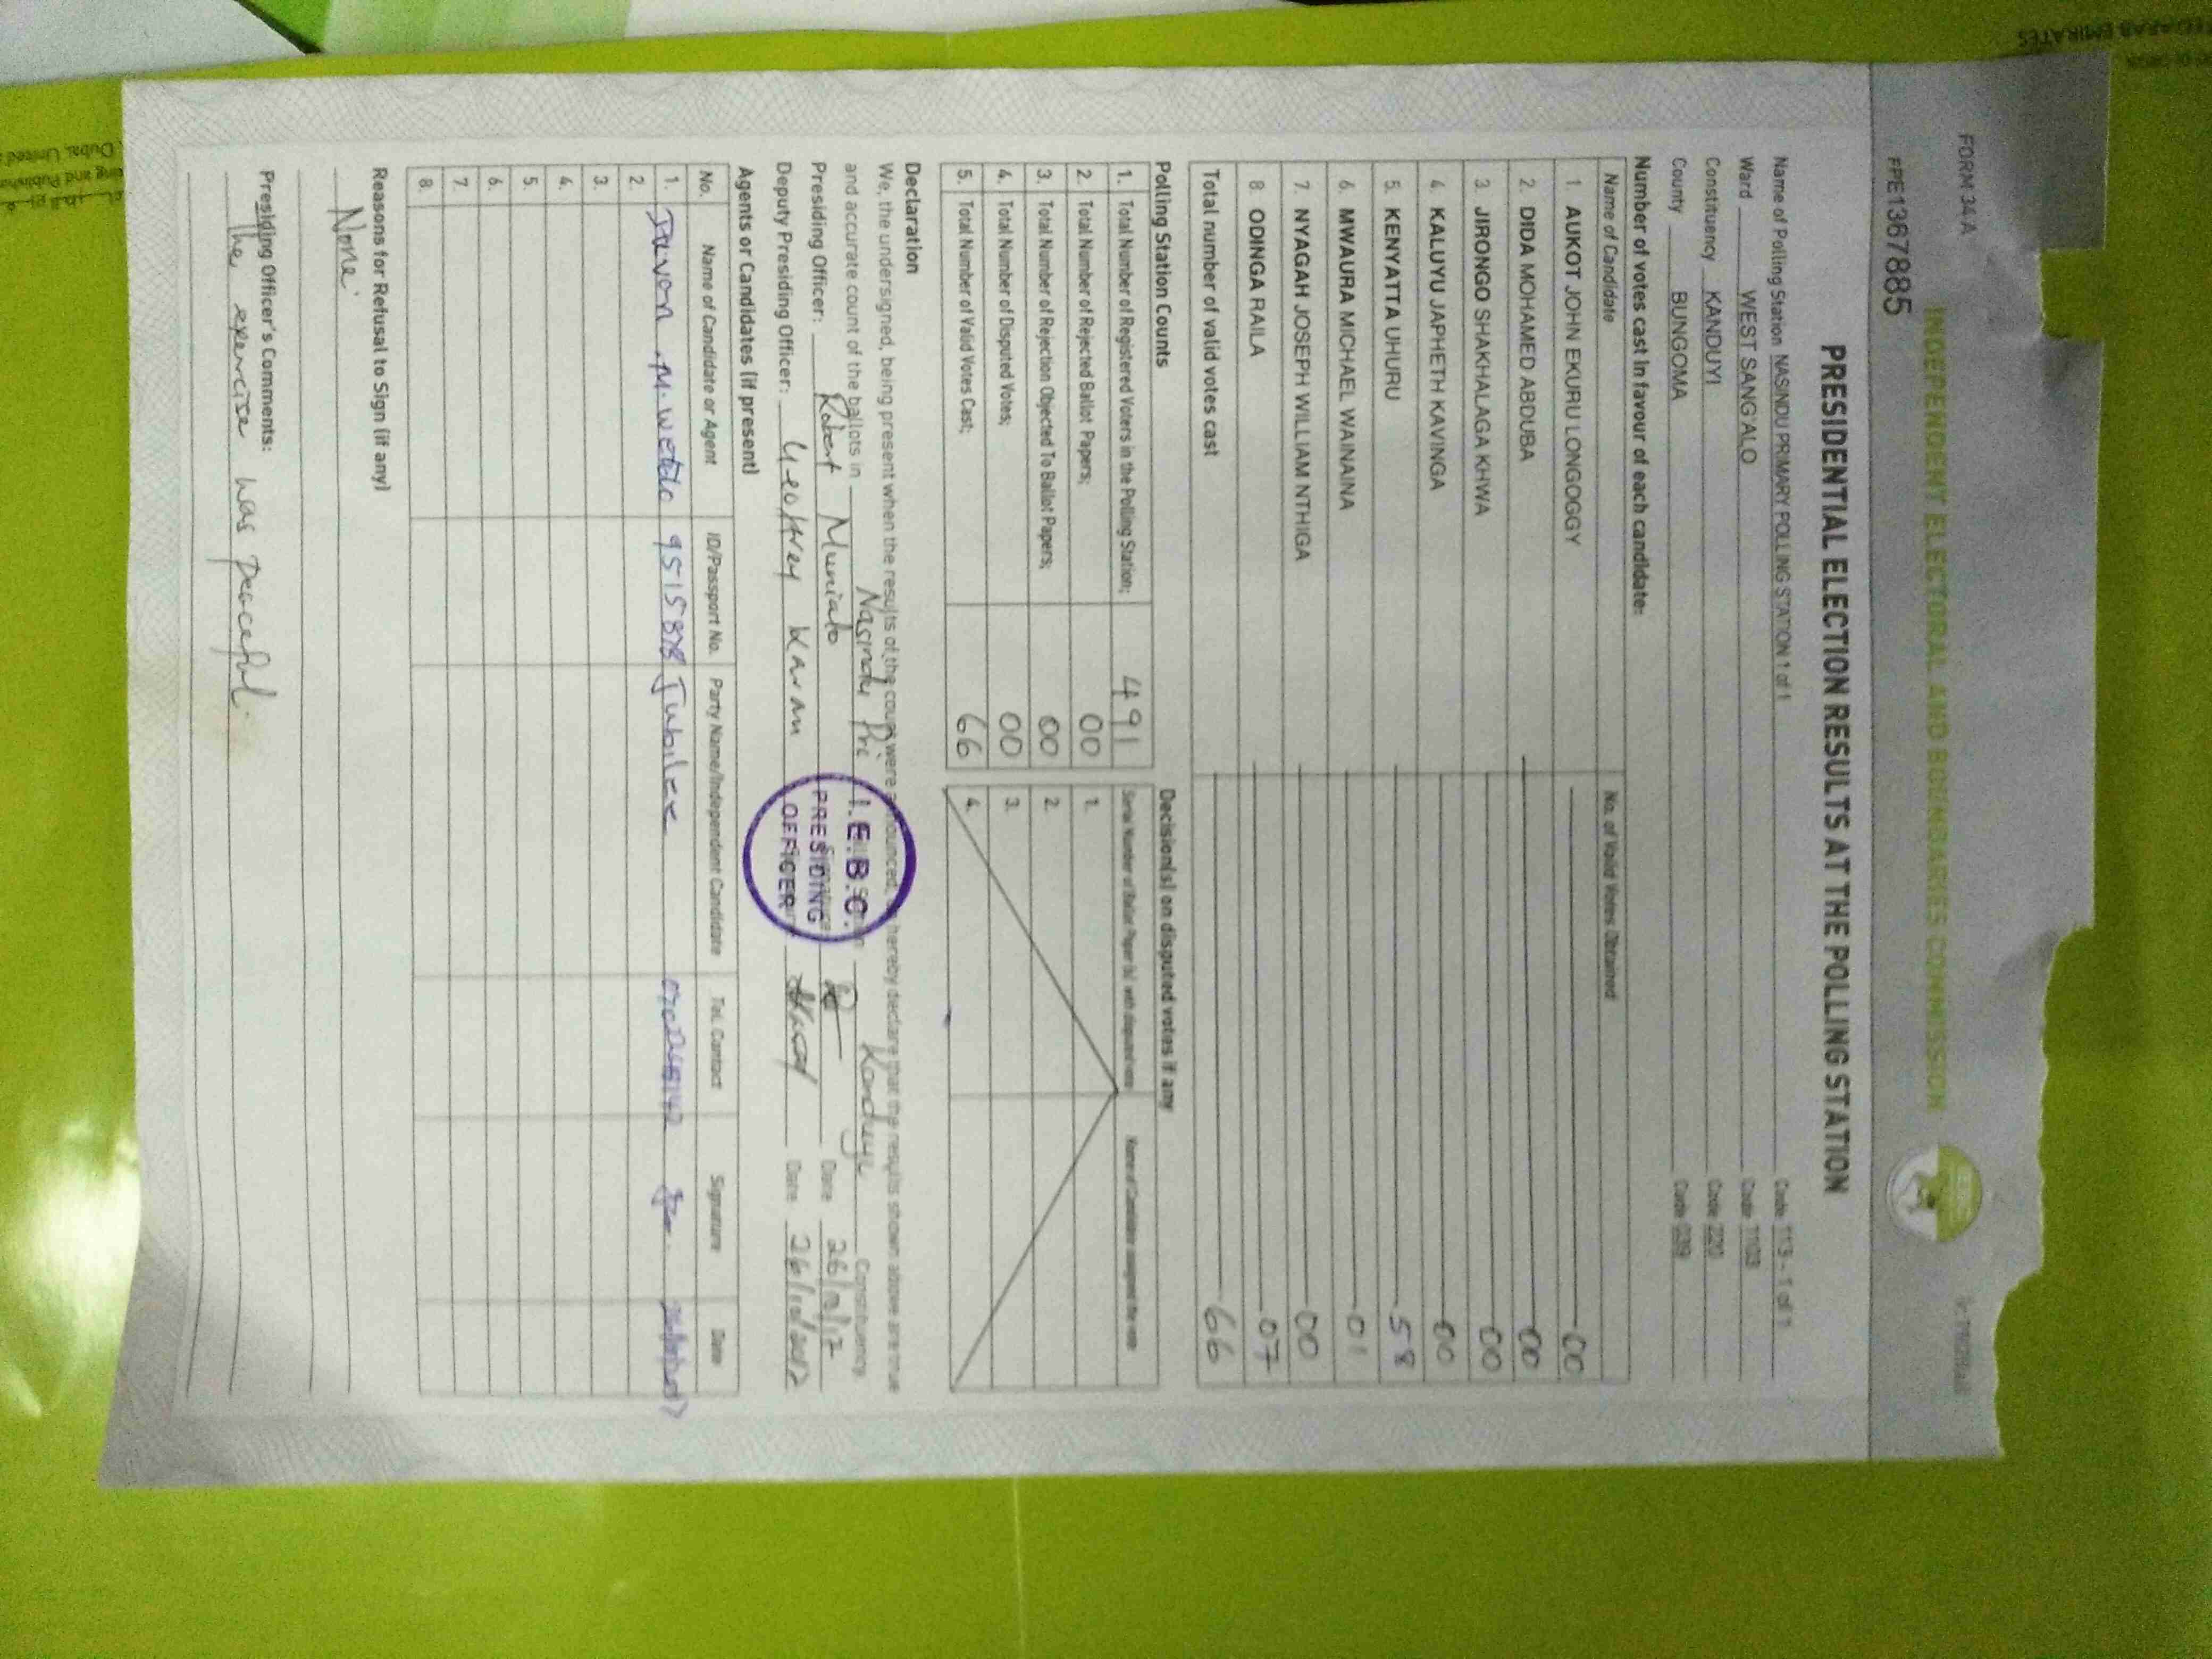 FORM 34A
FPE1367885
INDEPENDENT ELECTORAL AND BOUNDARIES COMMISSION
PRESIDENTIAL ELECTION RESULTS AT THE POLLING STATION
Name of Polling Station NASINDU PRIMARY POLLING STATION 1 of 1 Code 113 - 1 of 1
Ward WEST SANG'ALO Code 1103
Constituency KANDUYI Code 220
County BUNGOMA Code 039
Number of votes cast in favour of each candidate:
Name of Candidate No. of Valid Votes Obtained
1. AUKOT JOHN EKURU LONGOGGY 00
2. DIDA MOHAMED ABDUBA 00
3. JIRONGO SHAKHALAGA KHWA 00
4. KALUYU JAPHETH KAVINGA 00
5. KENYATTA UHURU 58
6. MWAURA MICHAEL WAINAINA 01
7. NYAGAH JOSEPH WILLIAM NTHIGA 00
8. ODINGA RAILA 07
Total number of valid votes cast 66
Polling Station Counts Decision(s) on disputed votes if any
1. Total Number of Registered Voters in the Polling Station; 491
2. Total Number of Rejected Ballot Papers; 00
3. Total Number of Rejection Objected To Ballot Papers; 00
4. Total Number of Disputed Votes; 00
5. Total Number of Valid Votes Cast; 66
Serial Number of Ballot Paper (s) with disputed vote Name of Candidate assigned the vote
1.
2.
3.
4.
Declaration
We, the undersigned, being present when the results of the count were announced, hereby declare that the results shown above are true
and accurate count of the ballots in Nasindu Pri Kanduyi Constituency
Presiding Officer: Robert Muniato Date 26/10/17
Deputy Presiding Officer: Geoffrey Date 26/10/2017
I.E.B.C.
PRESIDING
OFFICER
Agents or Candidates (if present)
No. Name of Candidate or Agent ID/Passport No. Party Name/Independent Candidate Tel. Contact Signature Date
1. 9515878 Jubilee
2.
3.
4.
5.
6.
7.
8.
Reasons for Refusal to Sign (if any)
None
Presiding Officer's Comments:
The exercise was peaceful.